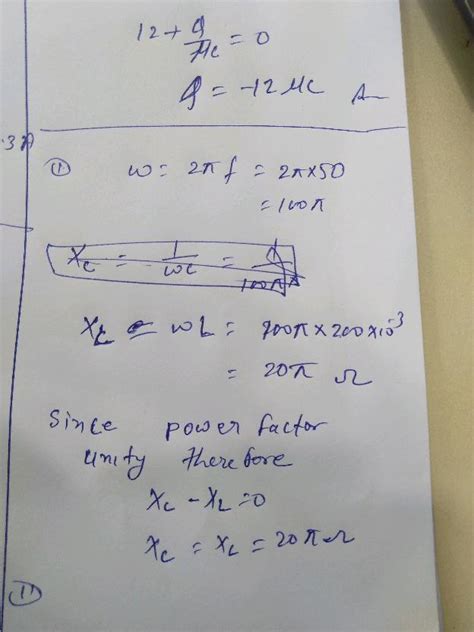 12 + q/μc = 0
q = -12 μc A
3A
(1) ω = 2πf = 2π×50
= 100π
Xc = 1/ωc = 1/100π
XL = ωL = 100π × 200×10^-3
= 20π Ω
Since power factor
unity therefore
Xc - XL = 0
Xc = XL = 20π Ω
(11)